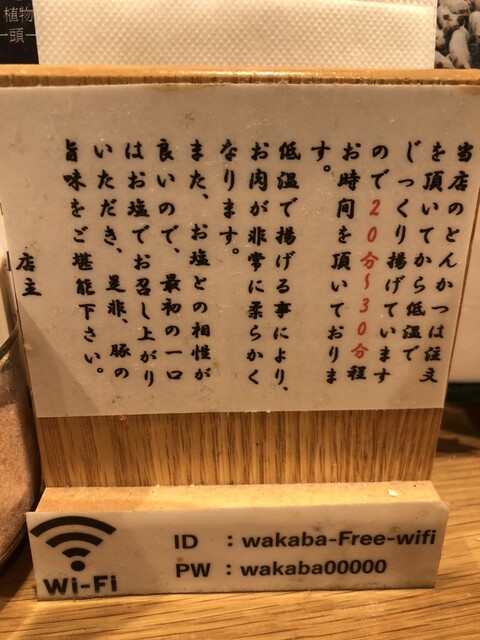 植物
一頭一
当店のとんかつは注文
を頂いてから低温で
じっくり揚げています
ので20分～30分程
お時間を頂いておりま
す。
低温で揚げる事により、
お肉が非常に柔らかく
なります。
また、お塩との相性が
良いので、最初の一口
はお塩でお召し上がり
いただき、是非、豚の
旨味をご堪能下さい。
店主
Wi-Fi
ID : wakaba-Free-wifi
PW : wakaba00000